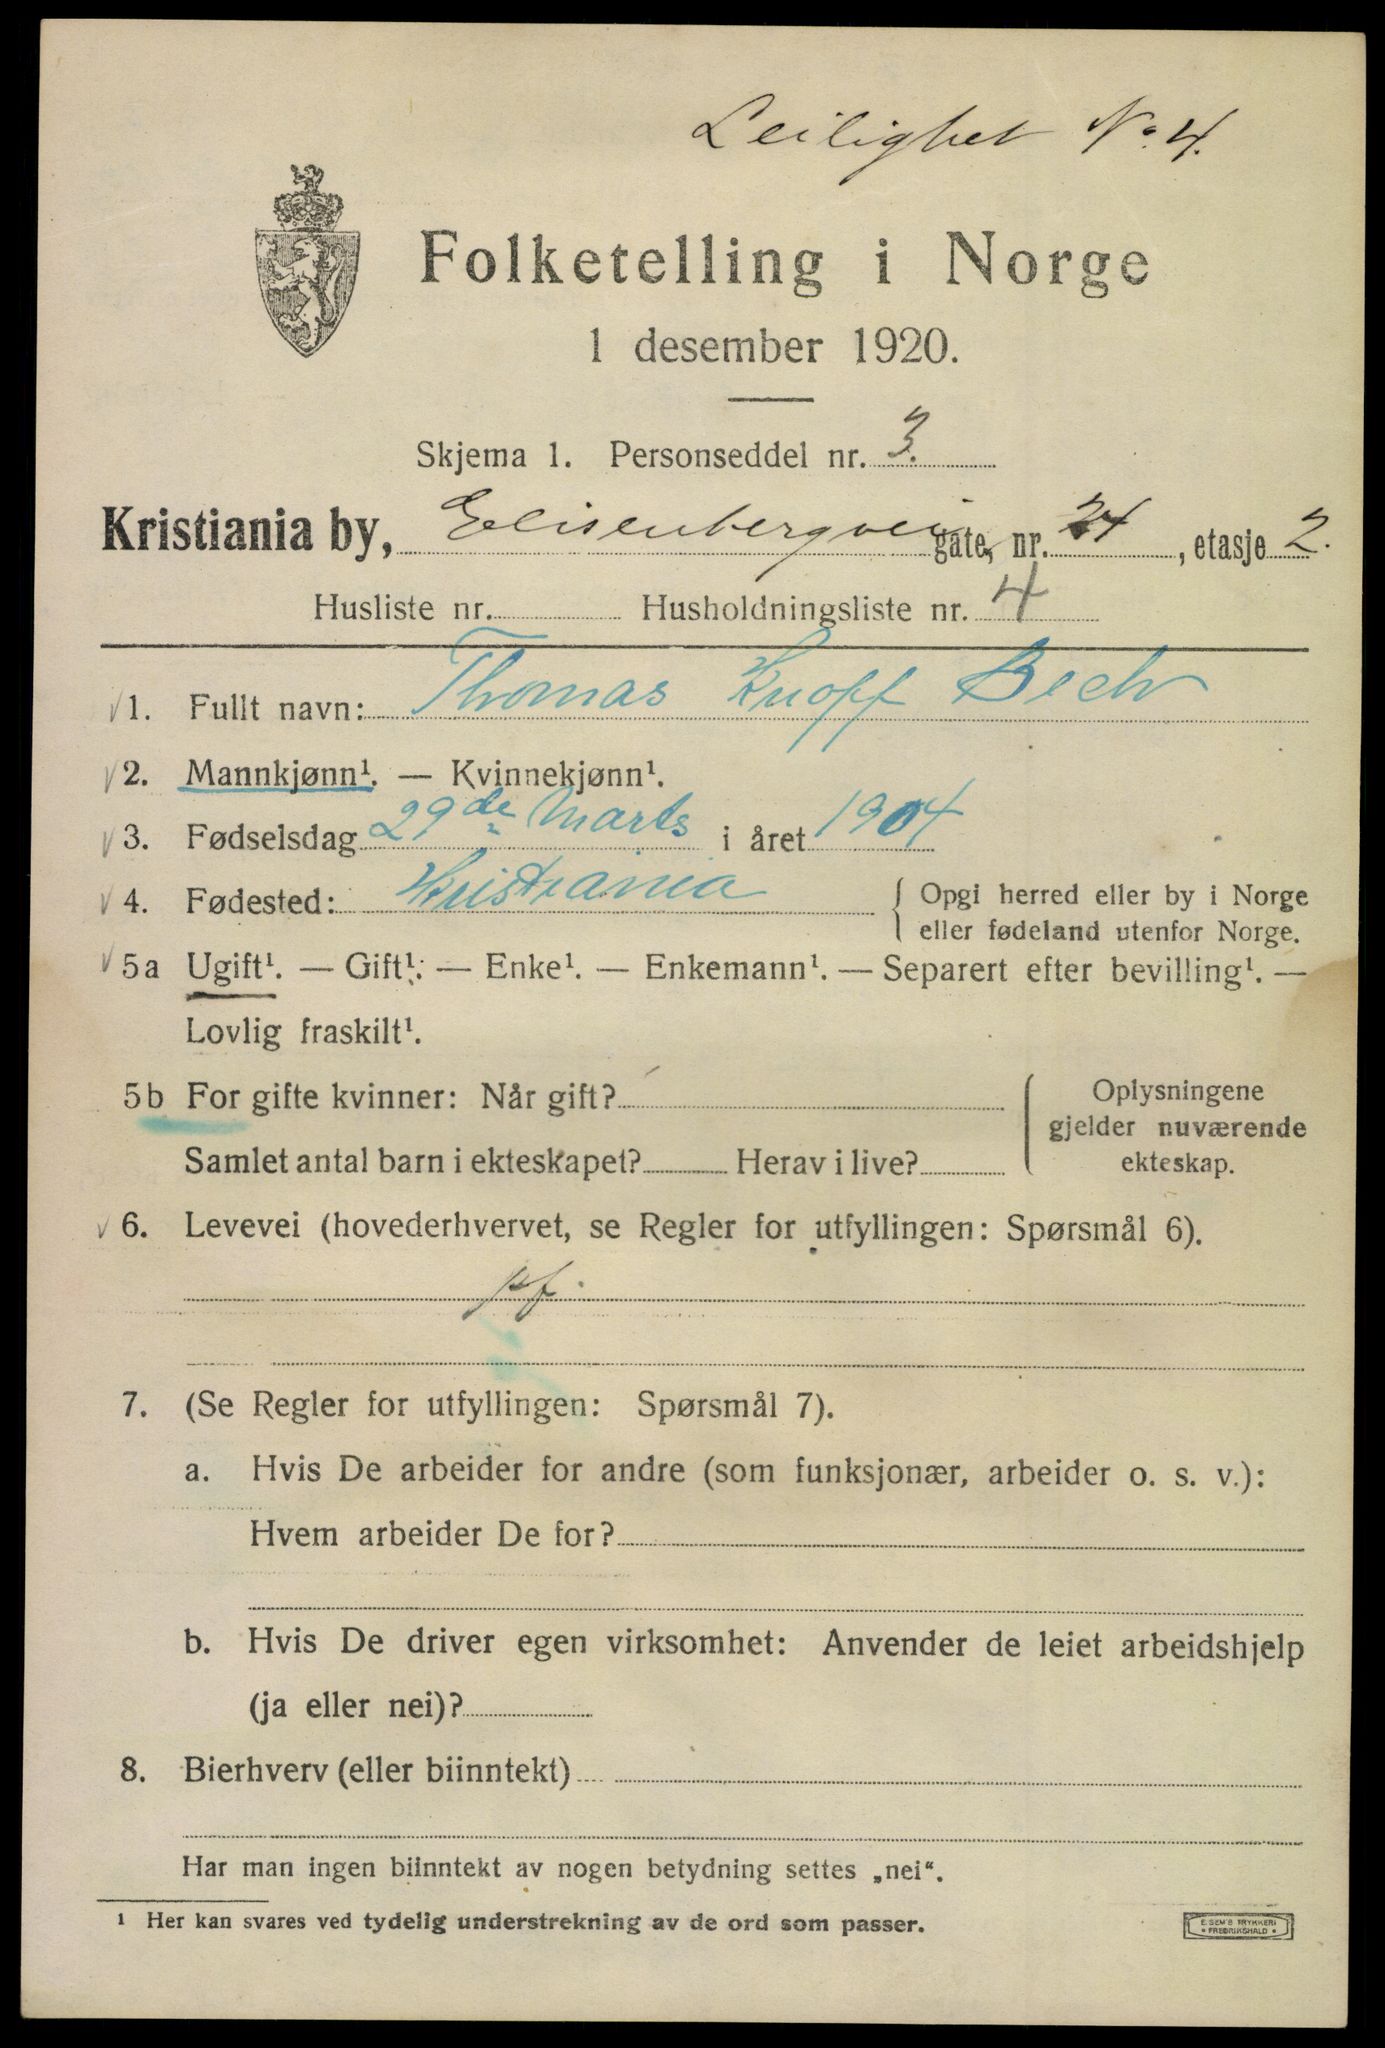 Leilighet No. 4.
Folketelling i Norge
1 desember 1920.
Skjema 1. Personseddel nr. 3.
Kristiania by, Elisenbergvei gate, nr. 24, etasje 2.
Husliste nr. Husholdningsliste nr. 4
1. Fullt navn: Thomas Knoff Bech
2. Mannkjønn¹. — Kvinnekjønn¹.
3. Fødselsdag 29de Marts i året 1904
4. Fødested: Kristiania { Opgi herred eller by i Norge
eller fødeland utenfor Norge.
5a Ugift¹. — Gift¹. — Enke¹. — Enkemann¹. — Separert efter bevilling¹. —
Lovlig fraskilt¹.
5b For gifte kvinner: Når gift? Oplysningene
gjelder nuværende
Samlet antal barn i ekteskapet? Herav i live? ekteskap.
6. Levevei (hovederhvervet, se Regler for utfyllingen: Spørsmål 6).
pf.
7. (Se Regler for utfyllingen: Spørsmål 7).
a. Hvis De arbeider for andre (som funksjonær, arbeider o. s. v.):
Hvem arbeider De for?
b. Hvis De driver egen virksomhet: Anvender de leiet arbeidshjelp
(ja eller nei)?
8. Bierhverv (eller biinntekt)
Har man ingen biinntekt av nogen betydning settes „nei“.
¹ Her kan svares ved tydelig understrekning av de ord som passer.
E. SEM'S TRYKKERI
• FREDRIKSHALD •